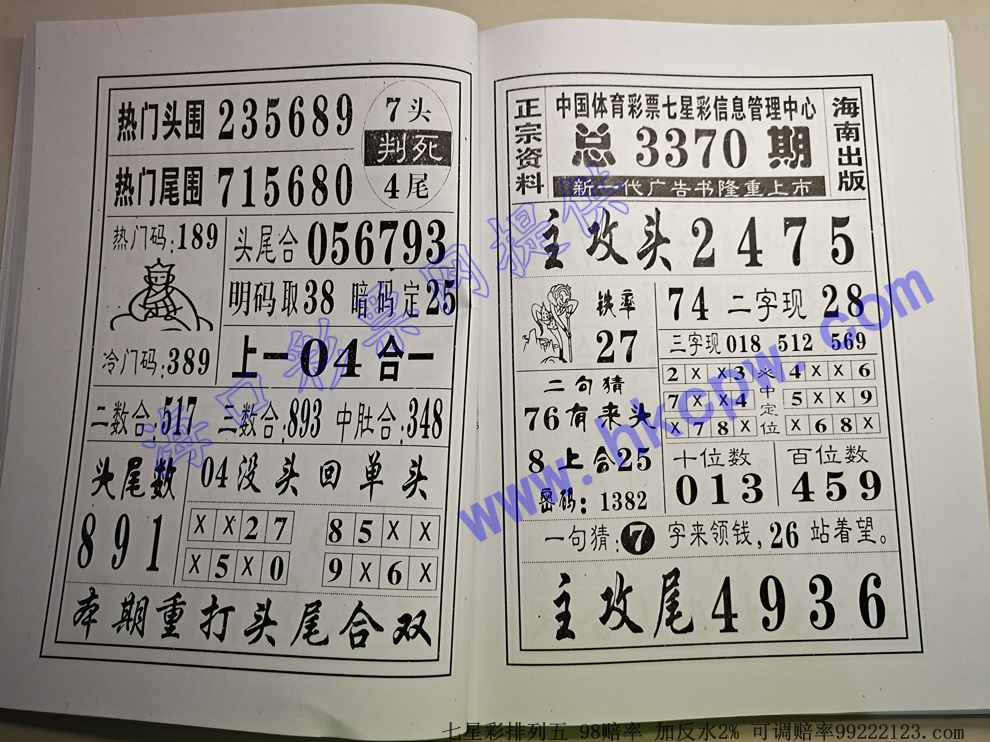 热门头围 235689
热门尾围 715680
7头
判死
4尾
热门码:189
冷门码:389
头尾合 056793
明码取38 暗码定25
上一04合一
二数合:517 三数合:893 中肚合:348
头尾数
891
04没头回单头
XX27 85XX
X5X0 9X6X
本期重打头尾合双
正宗资料
中国体育彩票七星彩信息管理中心
总3370期
新一代广告书隆重上市
海南出版
主攻头2475
铁率
27
74二字现28
三字现018 512 569
二句猜
76有来头
8上合25
密码:1382
2XX3 4XX6
7XX4 5XX9
X78X X68X
中定位
十位数
013
百位数
459
一句猜:7字来领钱,26站着望。
主攻尾4936
海口彩票网提供
www.hkcpw.com
七星彩排列五 98赔率 加反水2% 可调赔率99222123.com